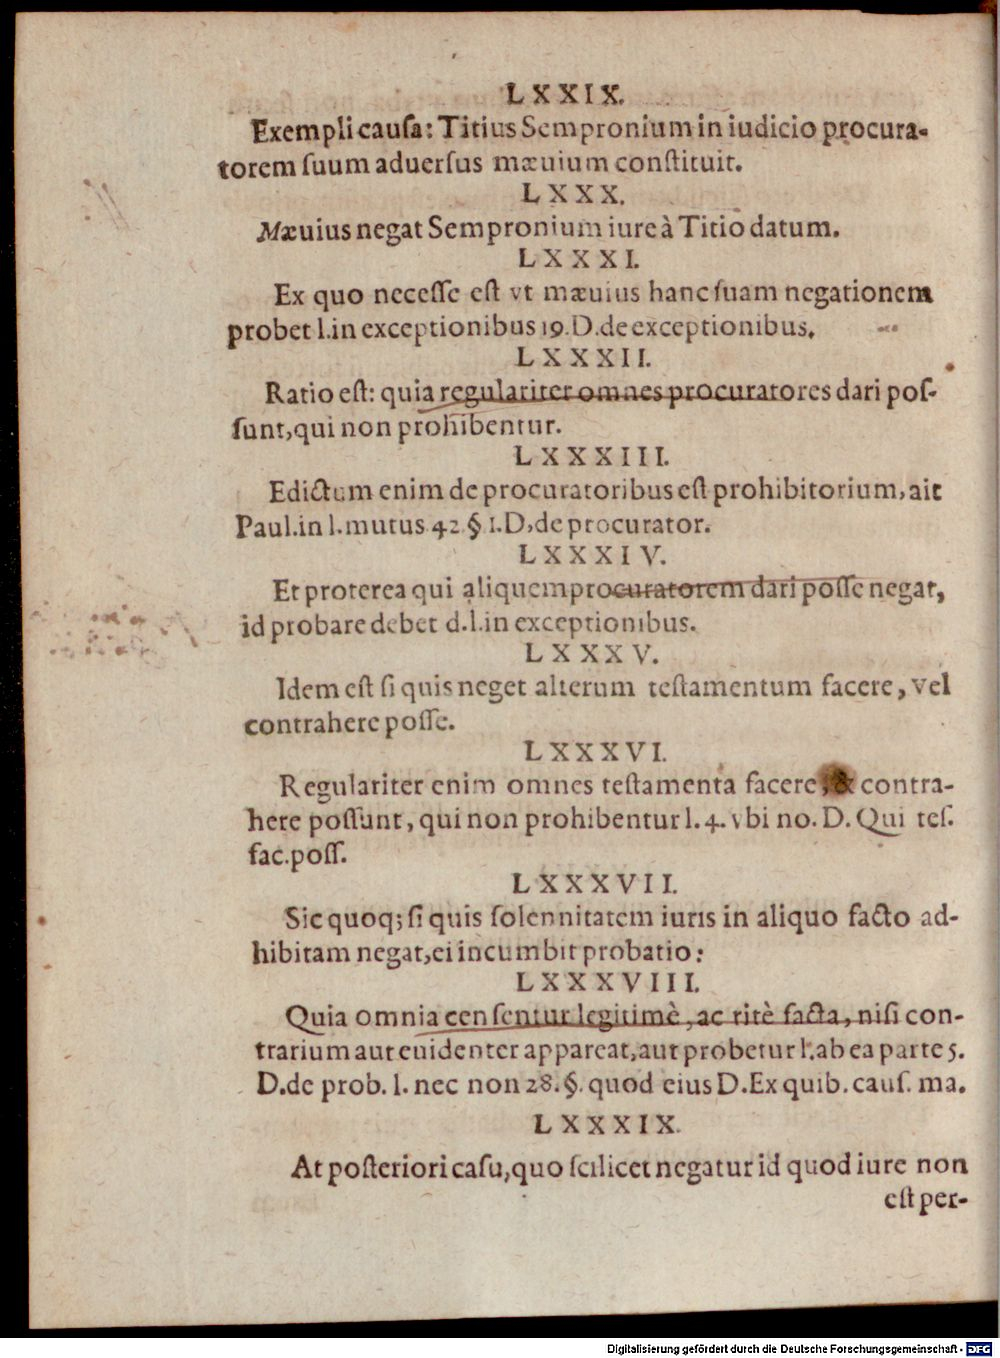 LXXIX.
Exempli cauſa: Titius Sempronium in iudicio procura-
torem ſuum aduerſus mæuium conſtituit.
LXXX.
Mæuius negat Sempronium iure à Titio datum.
LXXXI.
Ex quo neceſſe eſt vt mæuius hanc ſuam negationem
probet l. in exceptionibus 19. D. de exceptionibus.
LXXXII.
Ratio eſt: quia regulariter omnes procuratores dari poſ-
ſunt, qui non prohibentur.
LXXXIII.
Edictum enim de procuratoribus eſt prohibitorium, ait
Paul. in l. mutus 42 § 1. D, de procurator.
LXXXIV.
Et proterea qui aliquem procuratorem dari poſſe negat,
id probare debet d. l. in exceptionibus.
LXXXV.
Idem eſt ſi quis neget alterum teſtamentum facere, vel
contrahere poſſe.
LXXXVI.
Regulariter enim omnes teſtamenta facere, & contra-
here poſſunt, qui non prohibentur l. 4. vbi no. D. Qui teſ.
fac. poſſ.
LXXXVII.
Sic quoq; ſi quis ſolennitatem iuris in aliquo facto ad-
hibitam negat, ei incumbit probatio:
LXXXVIII.
Quia omnia cenſentur legitimè, ac ritè facta, niſi con-
trarium aut euidenter appareat, aut probetur l. ab ea parte 5.
D. de prob. l. nec non 28. §. quod eius D. Ex quib. cauſ. ma.
LXXXIX.
At poſteriori caſu, quo ſcilicet negatur id quod iure non
eſt per-
Digitalisierung gefördert durch die Deutsche Forschungsgemeinschaft - DFG